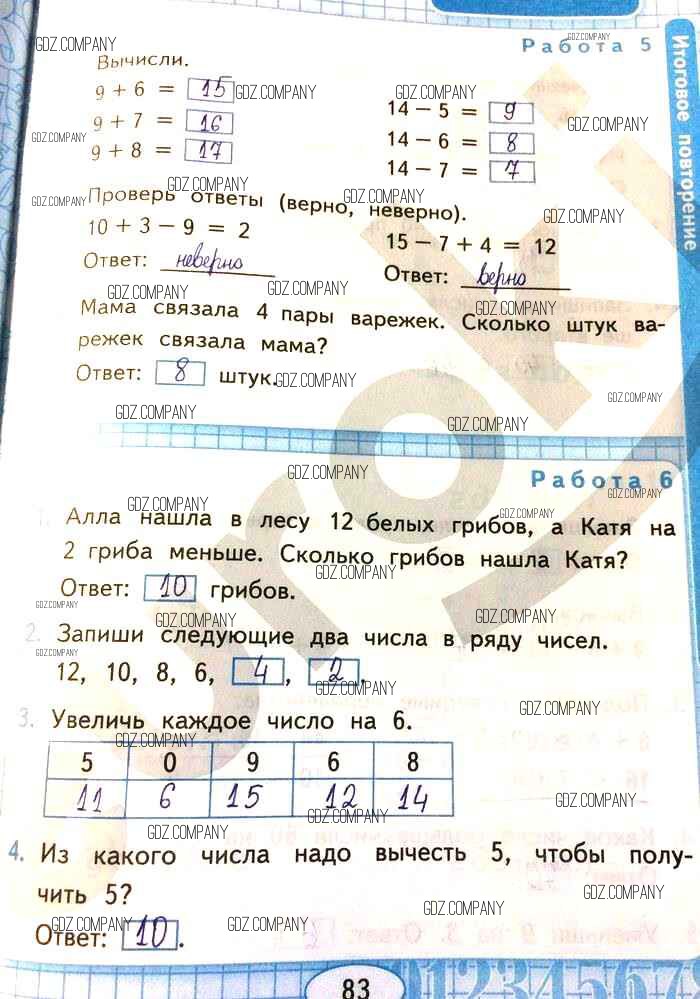 Работа 5
Итоговое повторение
Вычисли.
9 + 6 = 15
14 − 5 = 9
9 + 7 = 16
14 − 6 = 8
9 + 8 = 17
14 − 7 = 7
Проверь ответы (верно, неверно).
10 + 3 − 9 = 2
15 − 7 + 4 = 12
Ответ: неверно
Ответ: верно
Мама связала 4 пары варежек. Сколько штук ва-
режек связала мама?
Ответ: 8 штук.
Работа 6
1. Алла нашла в лесу 12 белых грибов, а Катя на
2 гриба меньше. Сколько грибов нашла Катя?
Ответ: 10 грибов.
2. Запиши следующие два числа в ряду чисел.
12, 10, 8, 6, 4, 2.
3. Увеличь каждое число на 6.
5 0 9 6 8
11 6 15 12 14
4. Из какого числа надо вычесть 5, чтобы полу-
чить 5?
Ответ: 10.
83
01234567
GDZ.COMPANY
uroki